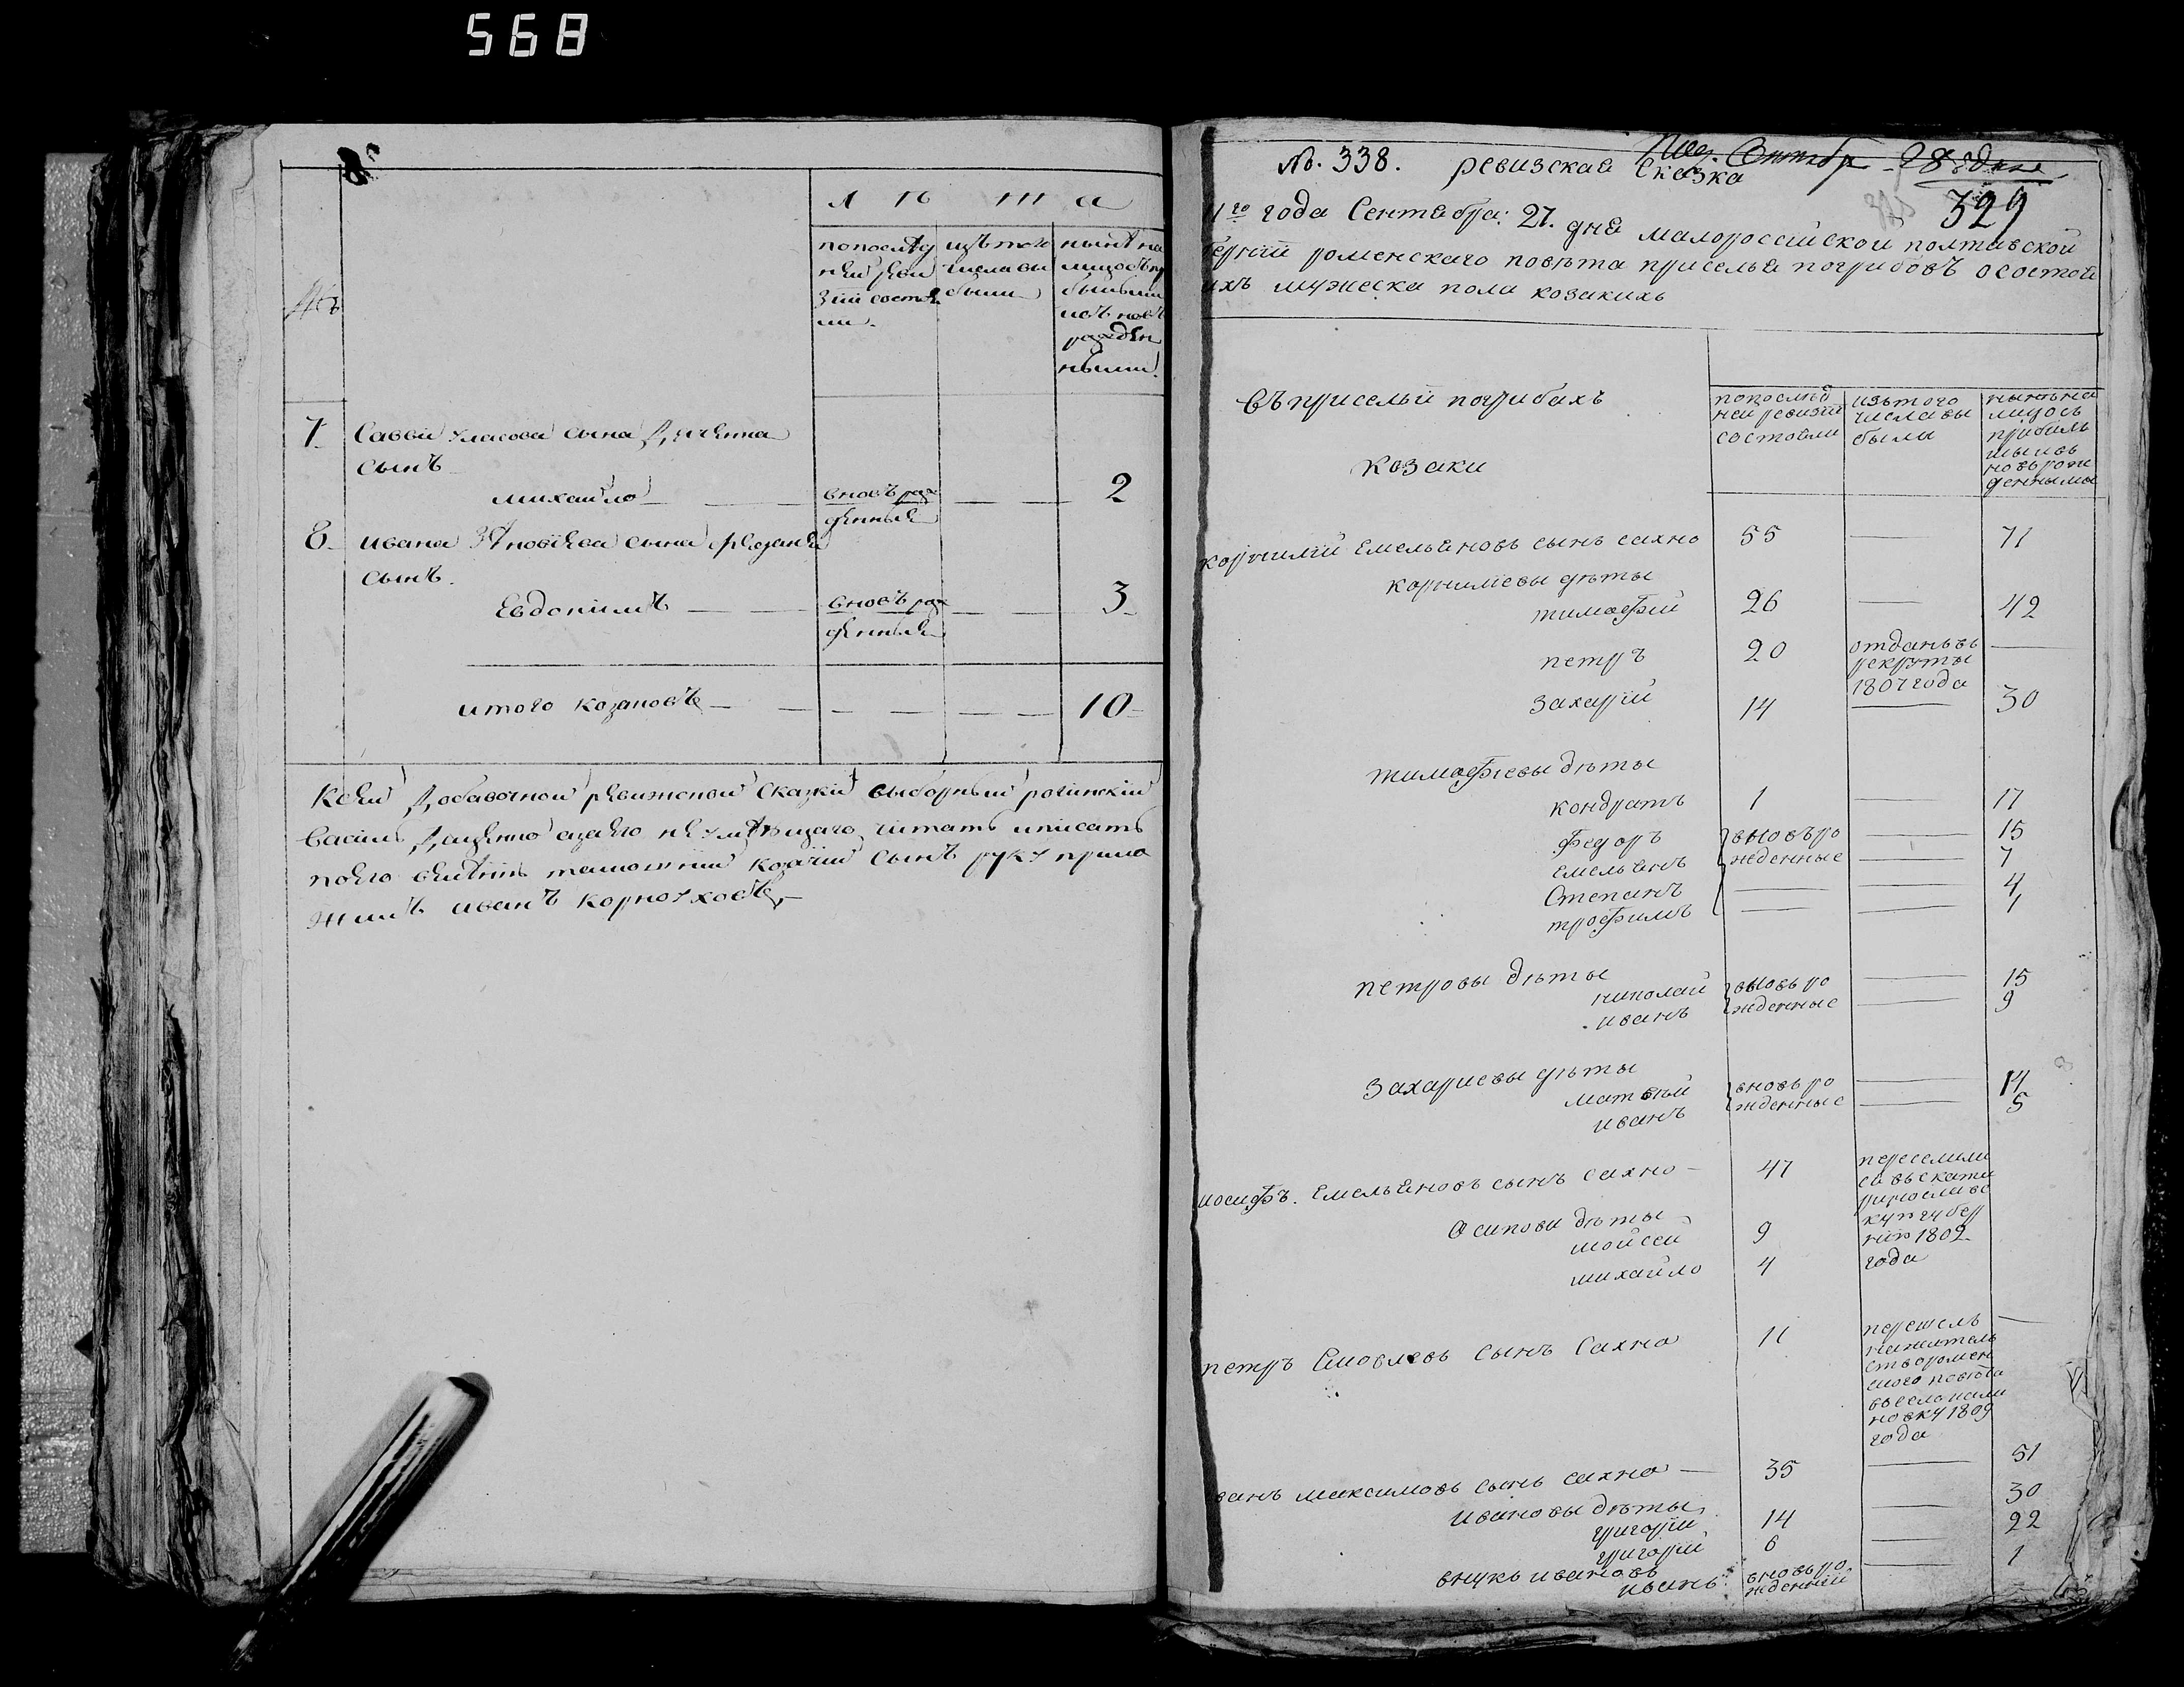 568
8
№
л ѣ т а
попослѣд
ней реви
зіи состоя
ли.
изъ того
числа вы
были
нынѣ на
лицо съ пр
былыми
исъ новъ
рожден
ными.
7 Савви Уласова сына Дяченка
сынъ
михаило — вновь рож
денныя — 2
8 ивана Зѣновіева сына
сынъ.
Евдокимъ — вновь рож
денныя — 3
итого козаковъ — 10
Ксей Добавочной ревижской Сказкій выборный рогинскій
Василь Дяценко азаего неумѣющаго читать иписать
поего велѣнію тамошній козачій Сынъ руку прило
жилъ иванъ Корноуховъ
№. 338. ревизская Сказка
Пол. Октябр 28 дня
329
11го года Сентября: 27. дня малороссійской полтавской
берній роменскаго повѣта приселья погрибовъ осостоя
ихъ мужеска пола козакихъ
Въприсельи погрибахъ
козаки
попослѣд
ней ревизіи
состояли
изътого
числавы
были
нынѣна
лицосъ
прибылъ
мыисъ
новьрож
денными
корнилій Емельяновъ сынъ сахно 55 — 71
корниліевы дѣты
тимофій 26 — 42
петръ 20 отданъвъ
рекруты
1807 года —
Захарій 14 — 30
тимофіевы дѣты
кондратъ 1 — 17
Федоръ вновьро — 15
емельянъ жденные — 7
Степанъ — — 4
трофимъ — — 1
петровы дѣты
николай вновьро — 15
иванъ жденные — 9
Захариевы дѣты
матвѣй вновьро — 14
иванъ жденные — 5
иосифъ. Емельяновъ сынъ сахно — 47
переселили
ся въекати
ринославс
кую губер
нию 1802
года
Осипови дѣты
мойсей 9
михайло 4
петръ Яковлевъ сынъ Сахно 11
перешелъ —
нажитель
ство ромен
ского повѣта
въсело кали
новку 1809
года
ванъ максимовъ сынъ сахно — 35 — 51
ивановы дѣты
григорій 14 — 30
григорій 6 — 22
внукъ ивановъ
иванъ вновьро
жденній — 1